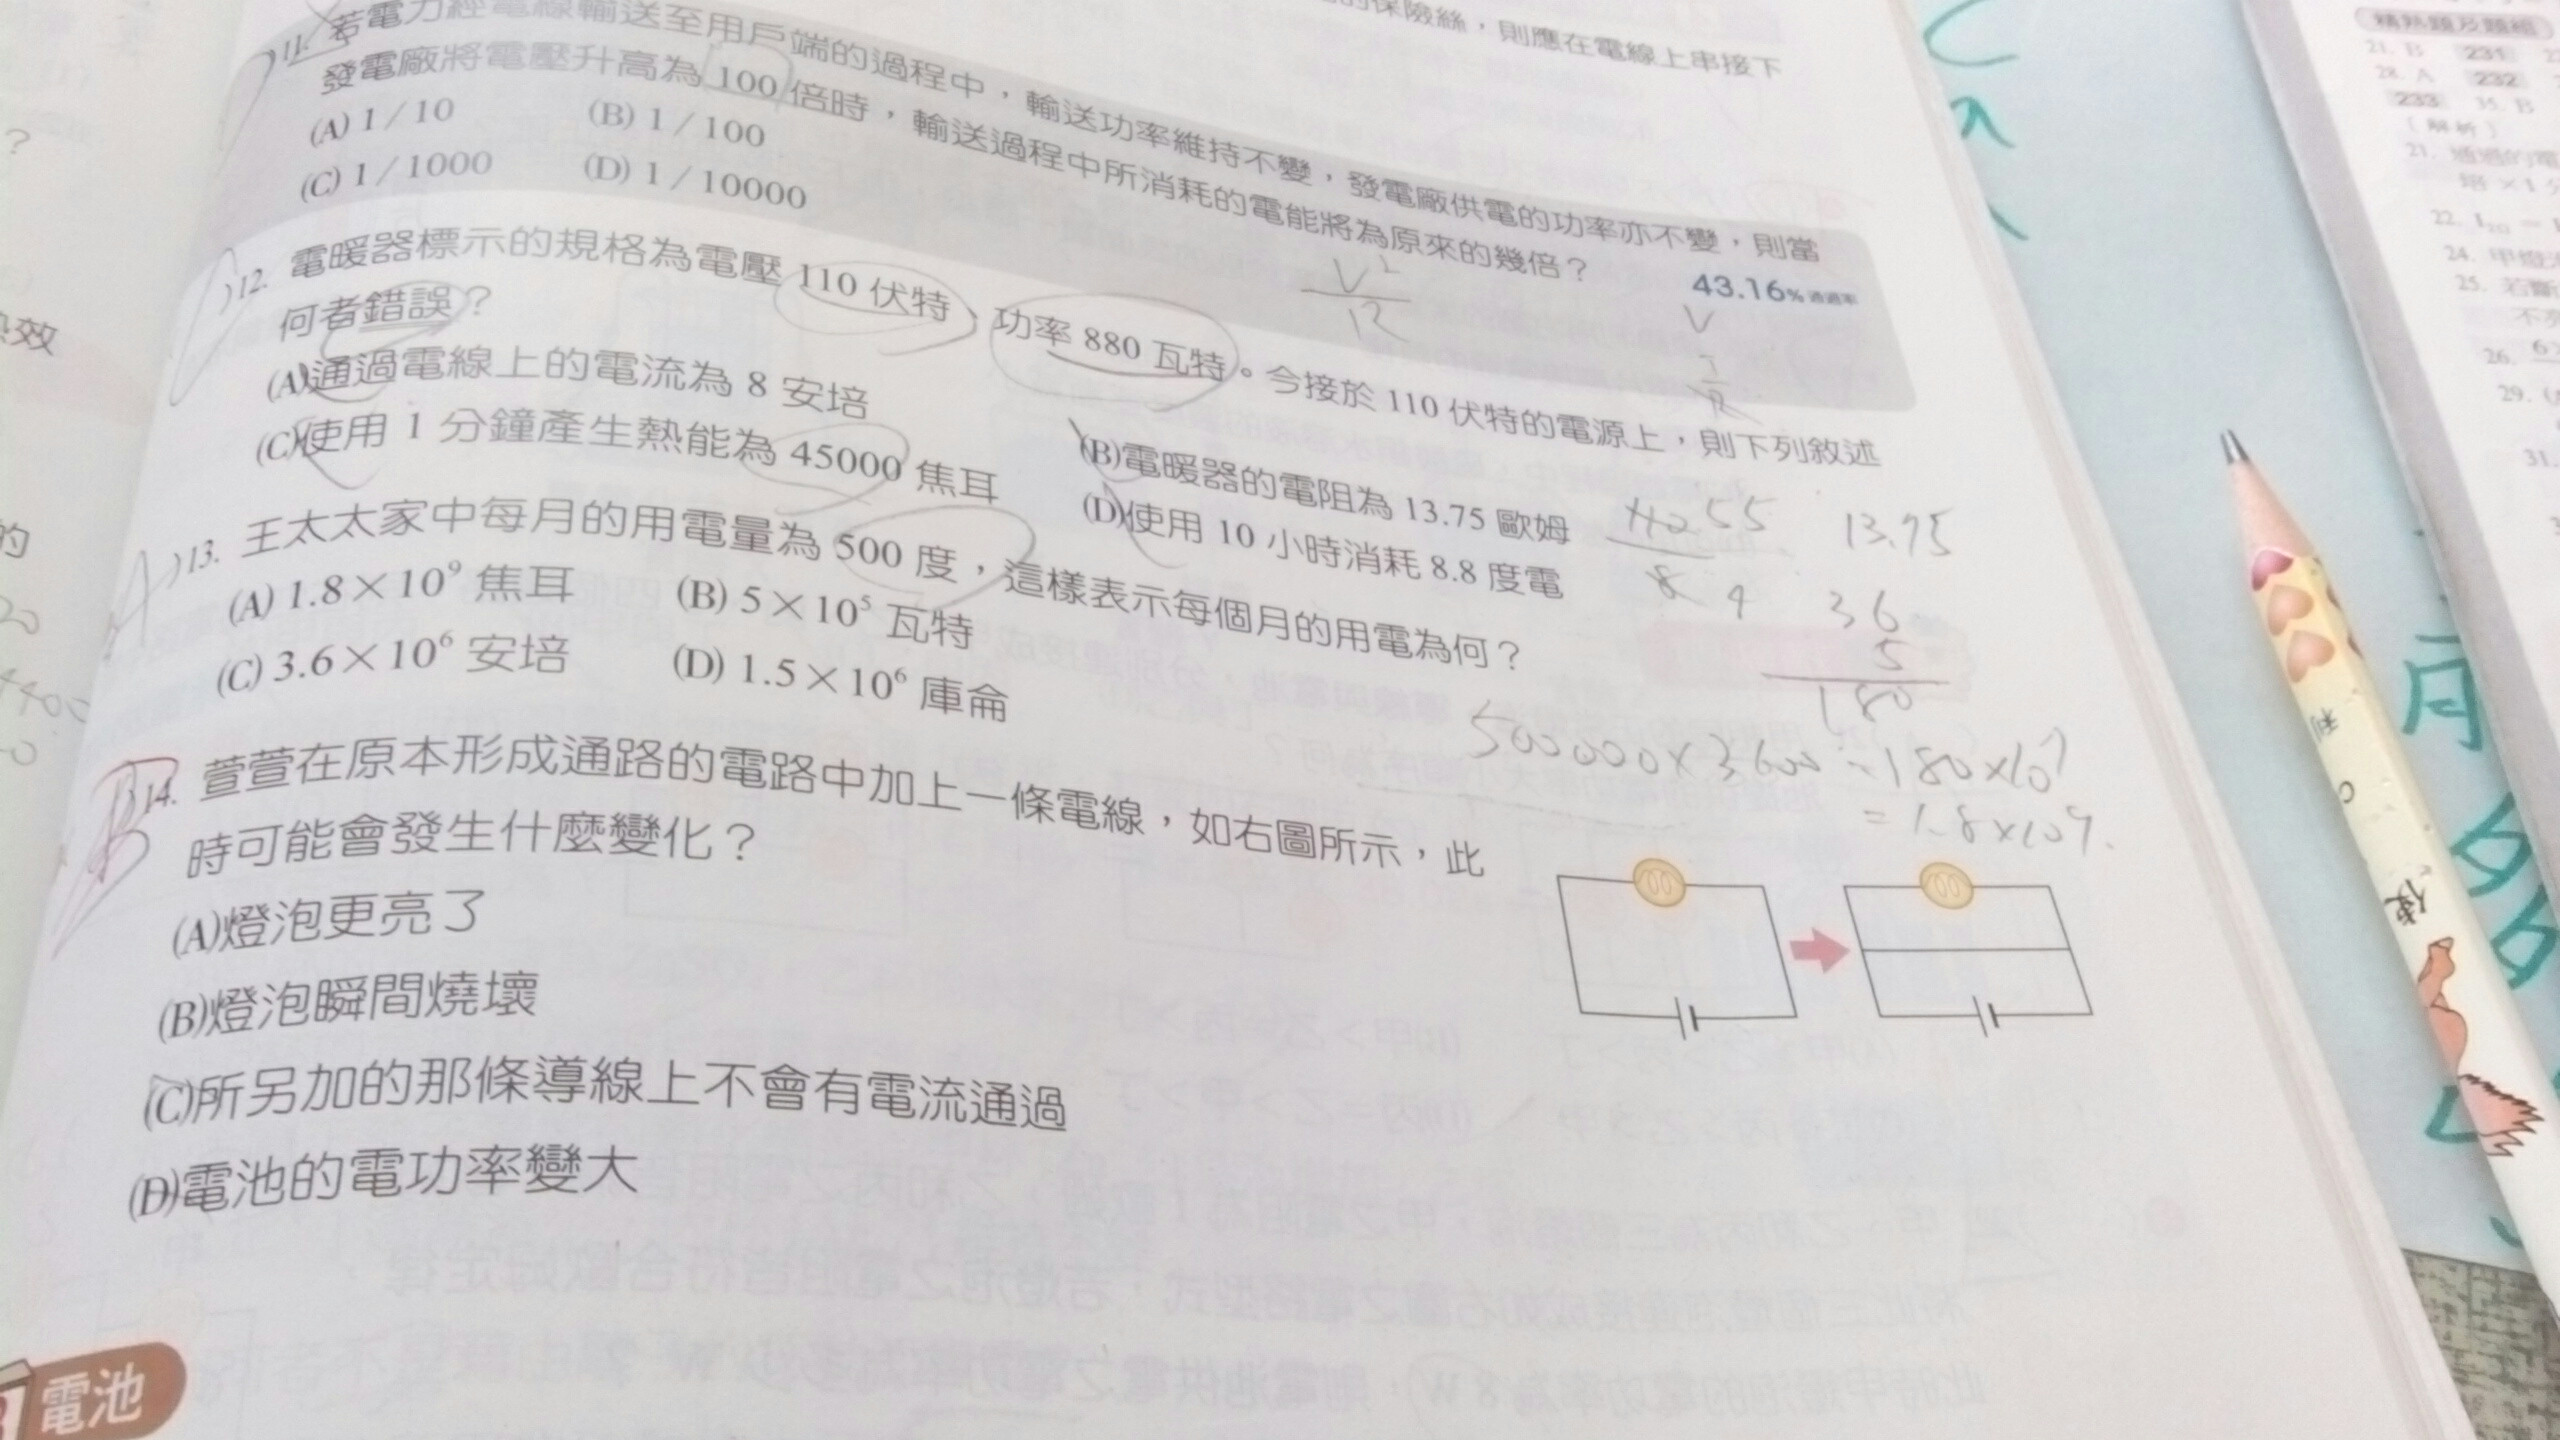 的保險絲，則應在電線上串接下
11. 若電力經電線輸送至用戶端的過程中，輸送功率維持不變，發電廠供電的功率亦不變，則當
發電廠將電壓升高為 100 倍時，輸送過程中所消耗的電能將為原來的幾倍？
43.16% 通過率
(A) 1／10 (B) 1／100
(C) 1／1000 (D) 1／10000
V²
R
V
12. 電暖器標示的規格為電壓 110 伏特、功率 880 瓦特。今接於 110 伏特的電源上，則下列敘述
何者錯誤？
(A)通過電線上的電流為 8 安培 (B)電暖器的電阻為 13.75 歐姆
(C)使用 1 分鐘產生熱能為 45000 焦耳 (D)使用 10 小時消耗 8.8 度電
55
8 4
13.75
A
13. 王太太家中每月的用電量為 500 度，這樣表示每個月的用電為何？
(A) 1.8×10⁹ 焦耳 (B) 5×10⁵ 瓦特
(C) 3.6×10⁶ 安培 (D) 1.5×10⁶ 庫侖
36
5
180
500000×3600=180×10⁷
=1.8×10⁹.
B
14. 萱萱在原本形成通路的電路中加上一條電線，如右圖所示，此
時可能會發生什麼變化？
(A)燈泡更亮了
(B)燈泡瞬間燒壞
(C)所另加的那條導線上不會有電流通過
(D)電池的電功率變大
電池
？
效
的
20
4400
精熟題及題組
21. B 231
28. A 232
233 35. B
(解析)
21. 通過的電
22.
24. 甲燈泡
25. 若斷
26.
29.
31.
利
便